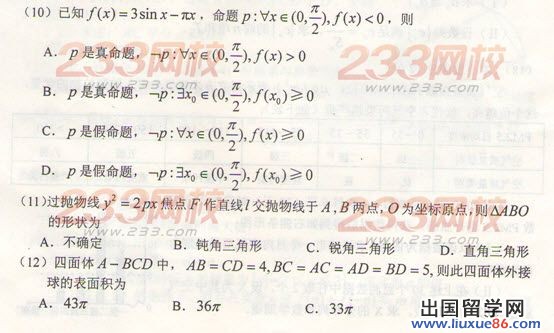 (10) 已知 f(x)=3sin x−πx，命题 p:∀x∈(0,π/2), f(x)<0，则
A． p 是真命题，¬p:∀x∈(0,π/2), f(x)>0
B． p 是真命题，¬p:∃x₀∈(0,π/2), f(x₀)≥0
C．p 是假命题，¬p:∀x∈(0,π/2), f(x)≥0
D．p 是假命题，¬p:∃x₀∈(0,π/2), f(x₀)≥0
(11)过抛物线 y²=2px 焦点 F 作直线 l 交抛物线于 A,B 两点，O 为坐标原点，则 ΔABO
的形状为
A．不确定 B．钝角三角形 C．锐角三角形 D．直角三角形
(12) 四面体 A−BCD 中，AB=CD=4,BC=AC=AD=BD=5，则此四面体外接
球的表面积为
A．43π B．36π C．33π
233网校
233网校
233网校
出国留学网
www.liuxue86.com